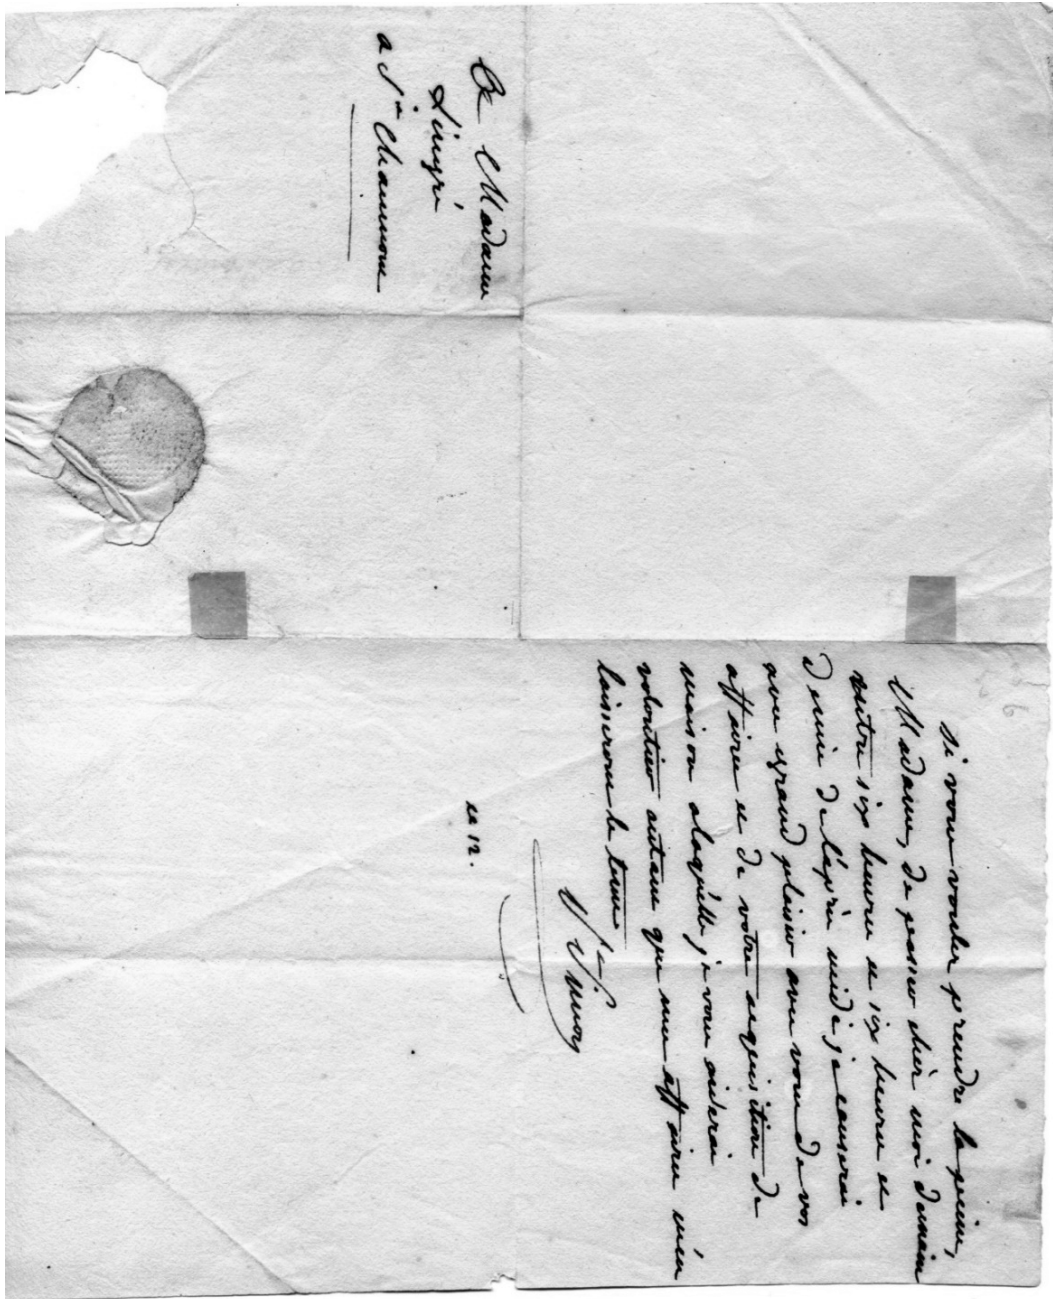 si vous voulez prendre la peine,
Madame, de passer chéz moi demain
entre six heures et six heures et
demie de l'après midi je causerai
avec grand plaisir avec vous de vos
affaires et de votre acquisition de
maison alaqu'elle je vous aiderai
volontier autant que mes affaires m'en
laisseront le tems
St Simon
ce 12.
A Madame
a St Chaumont